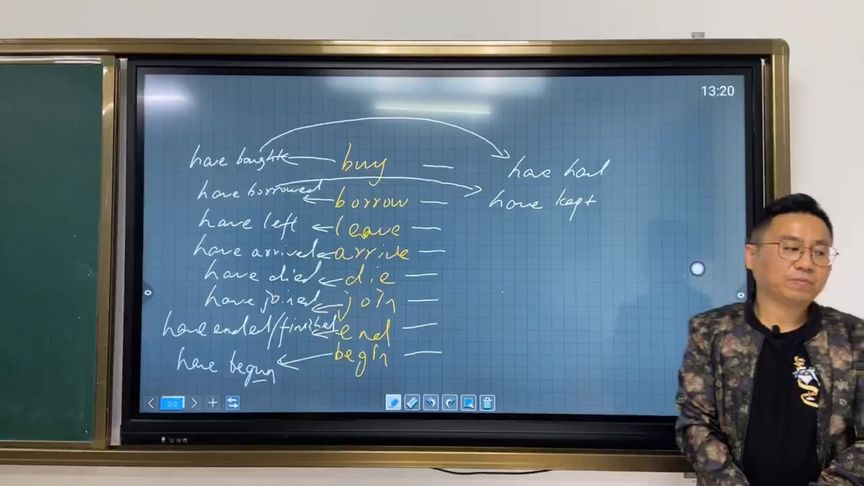 13:20
have bought buy — have had
have borrowed borrow — have kept
have left leave —
have arrived arrive —
have died die —
have joined join —
have ended/finished end —
have begun begin —
2/2